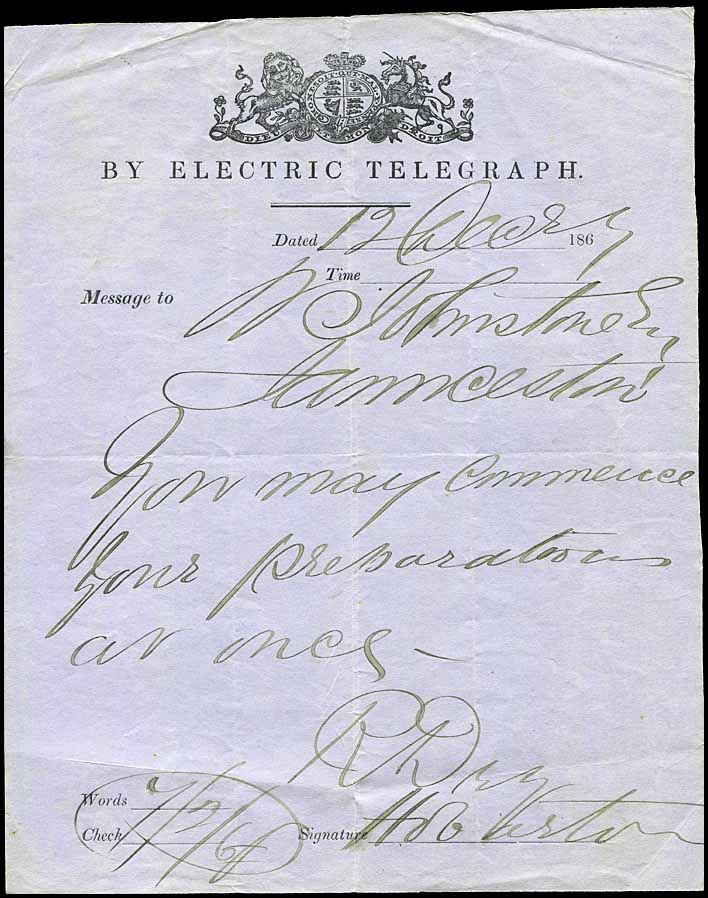 HONI SOIT QUI MAL Y PENSE
DIEU ET MON DROIT
BY ELECTRIC TELEGRAPH.
Dated 12 Decr 1867
Time
Message to W Johnstone Esq
Launceston
You may commence
your preparations
at once —
R Dry
Words 7/
Check
Signature Hobarton